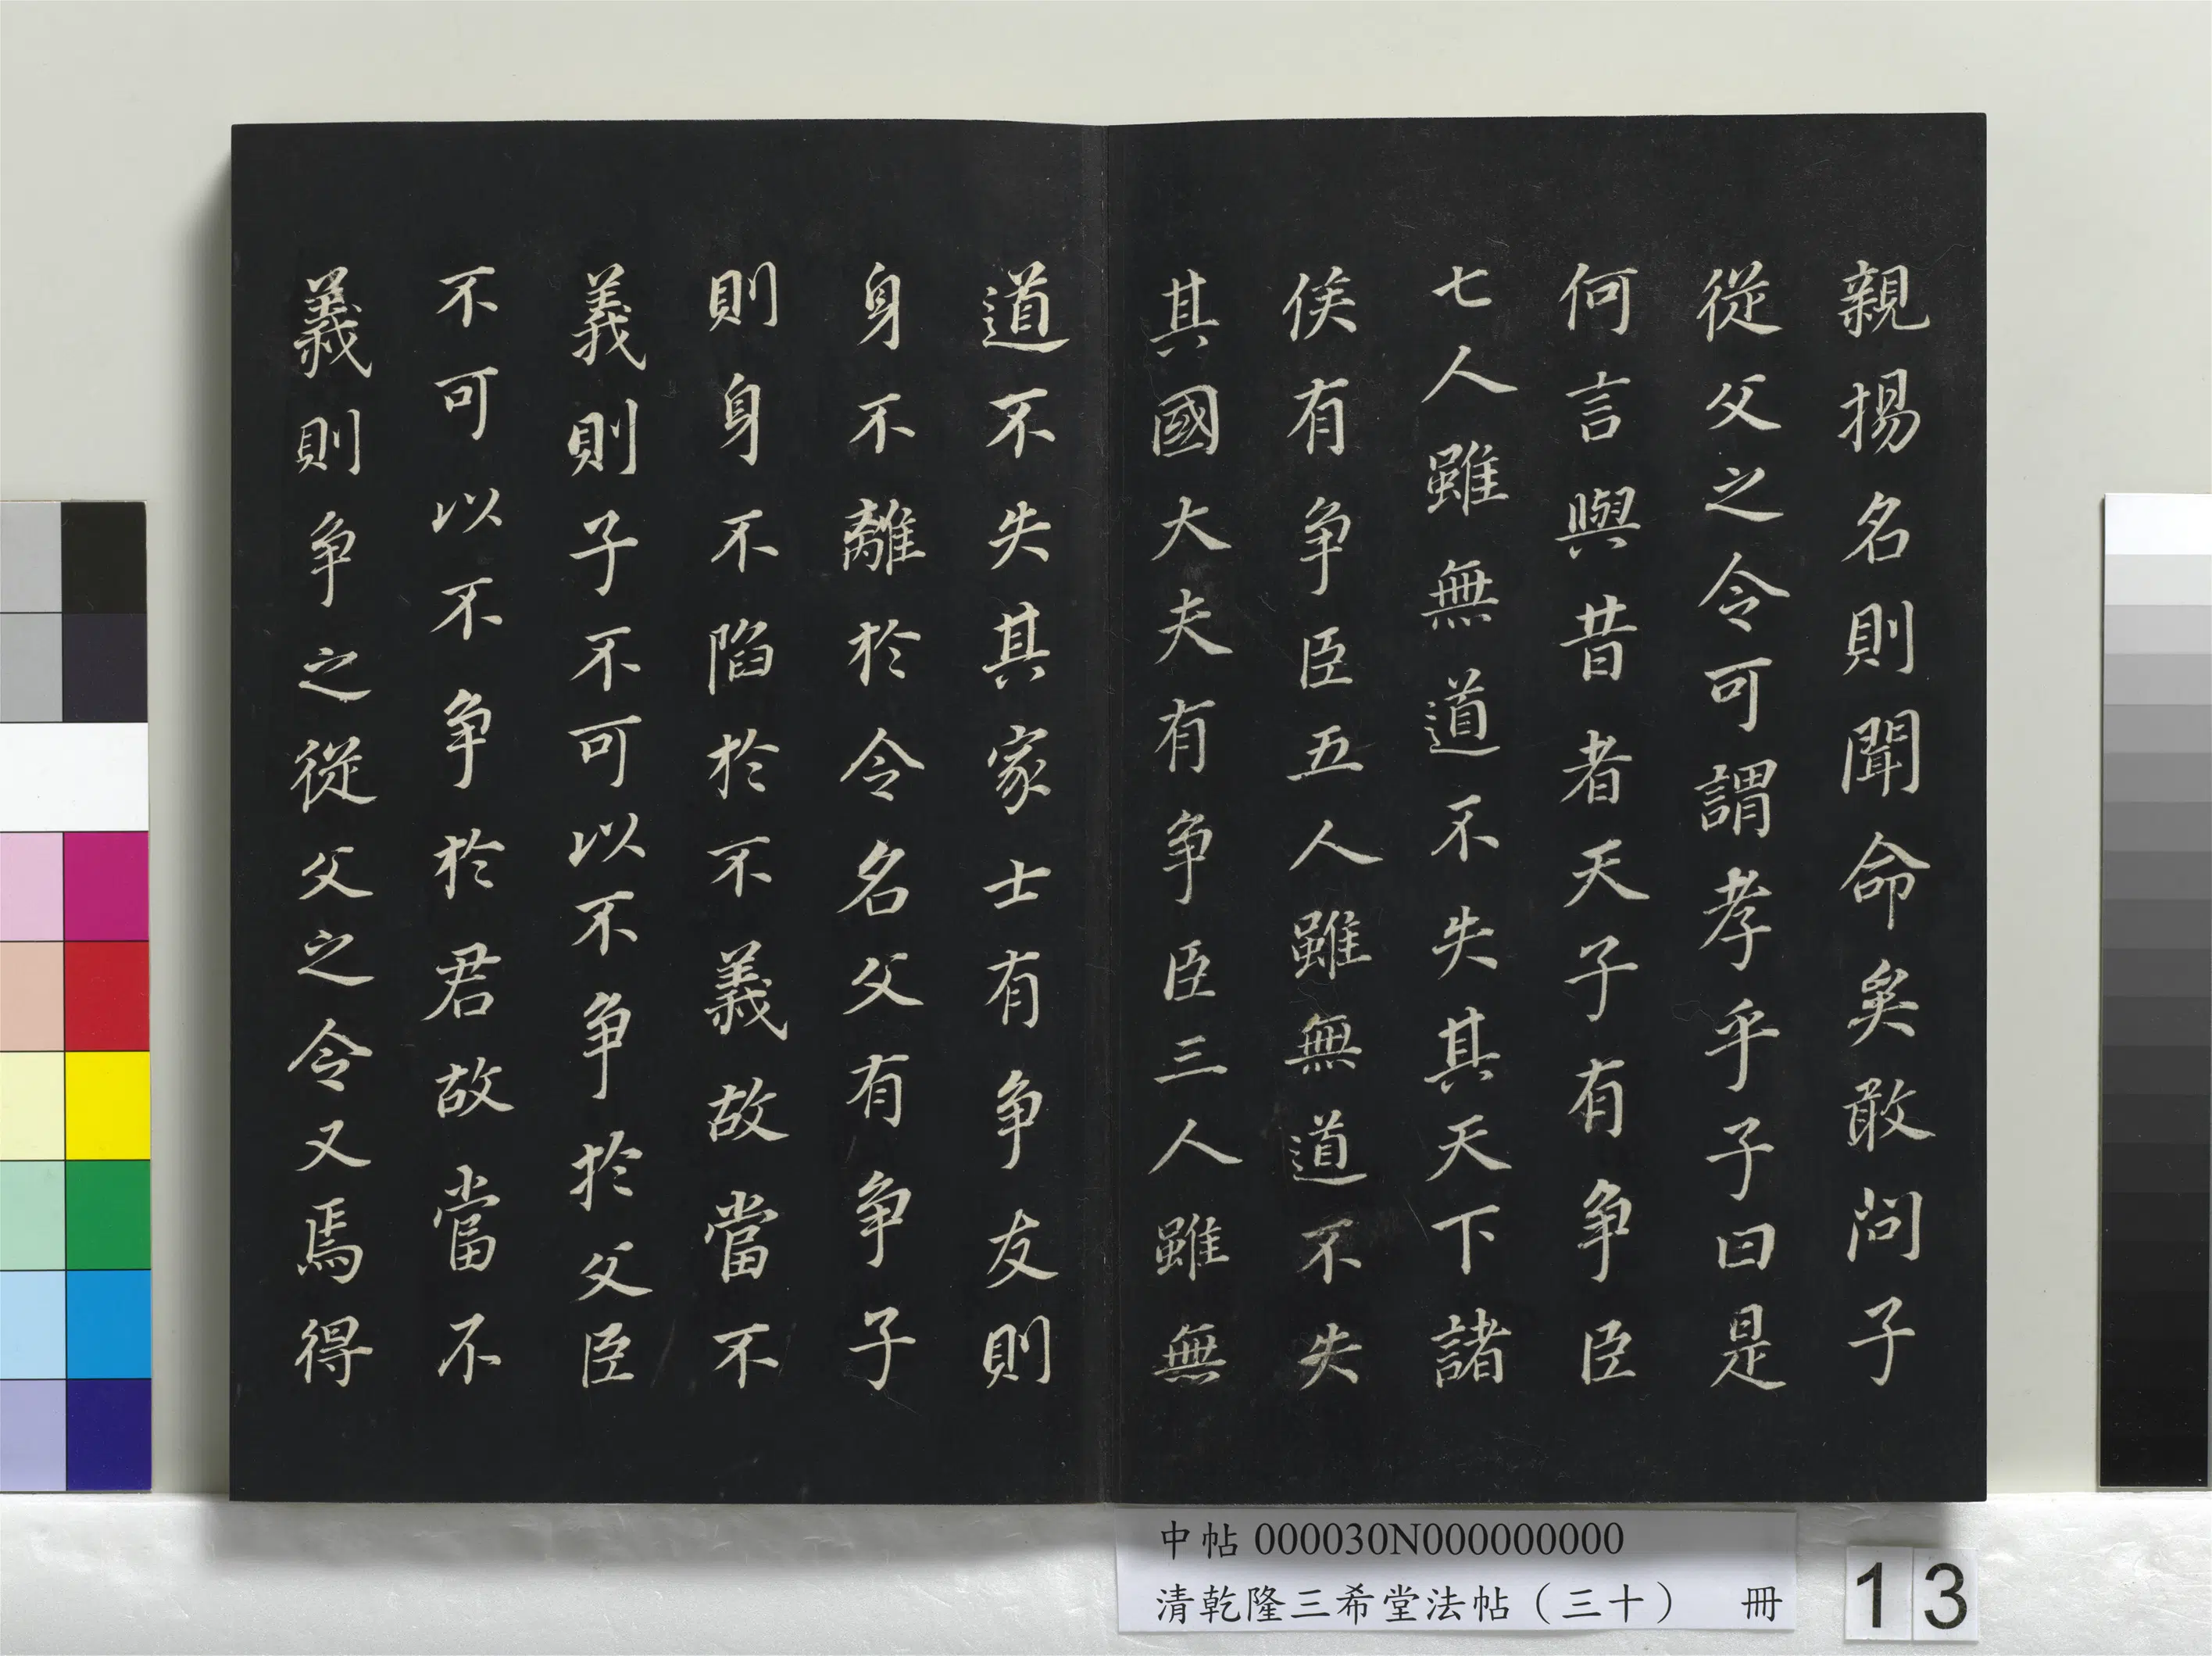 親揚名則聞命矣敢問子
從父之令可謂孝乎子曰是
何言與昔者天子有争臣
七人雖無道不失其天下諸
侯有争臣五人雖無道不失
其國大夫有争臣三人雖無
道不失其家士有争友則
身不離於令名父有争子
則身不陷於不義故當不
義則子不可以不争於父臣
不可以不争於君故當不
義則争之從父之令又焉得
中帖000030N000000000
清乾隆三希堂法帖（三十） 冊
13